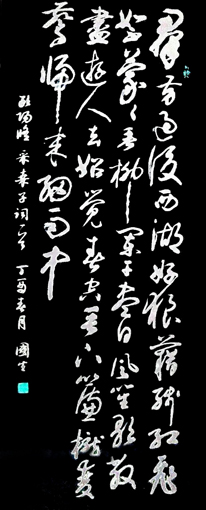 群芳過後西湖好狼藉殘紅飛
絮蒙蒙垂柳闌干盡日風笙歌散
盡遊人去始覺春空垂下簾櫳雙
燕歸來細雨中
歐陽脩采桑子詞一首丁酉春月國